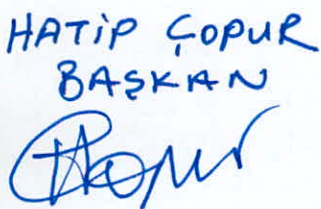 HATİP ÇOPUR
BAŞKAN